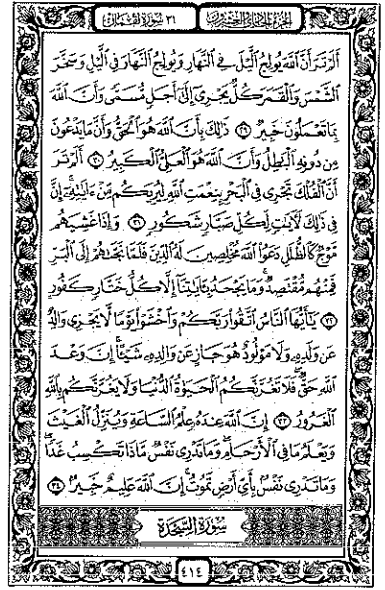 الجزء الحادي والعشرون
٣١ سورة لقمان
أَلَمْ تَرَ أَنَّ ٱللَّهَ يُولِجُ ٱلَّيْلَ فِى ٱلنَّهَارِ وَيُولِجُ ٱلنَّهَارَ فِى ٱلَّيْلِ وَسَخَّرَ
ٱلشَّمْسَ وَٱلْقَمَرَ كُلٌّ يَجْرِىٓ إِلَىٰٓ أَجَلٍ مُّسَمًّى وَأَنَّ ٱللَّهَ
بِمَا تَعْمَلُونَ خَبِيرٌ ٢٩ ذَٰلِكَ بِأَنَّ ٱللَّهَ هُوَ ٱلْحَقُّ وَأَنَّ مَا يَدْعُونَ
مِن دُونِهِ ٱلْبَٰطِلُ وَأَنَّ ٱللَّهَ هُوَ ٱلْعَلِىُّ ٱلْكَبِيرُ ٣٠ أَلَمْ تَرَ
أَنَّ ٱلْفُلْكَ تَجْرِى فِى ٱلْبَحْرِ بِنِعْمَتِ ٱللَّهِ لِيُرِيَكُم مِّنْ ءَايَٰتِهِۦٓ إِنَّ
فِى ذَٰلِكَ لَءَايَٰتٍ لِّكُلِّ صَبَّارٍ شَكُورٍ ٣١ وَإِذَا غَشِيَهُم
مَّوْجٌ كَٱلظُّلَلِ دَعَوُا۟ ٱللَّهَ مُخْلِصِينَ لَهُ ٱلدِّينَ فَلَمَّا نَجَّىٰهُمْ إِلَى ٱلْبَرِّ
فَمِنْهُم مُّقْتَصِدٌ وَمَا يَجْحَدُ بِـَٔايَٰتِنَآ إِلَّا كُلُّ خَتَّارٍ كَفُورٍ
٣٢ يَٰٓأَيُّهَا ٱلنَّاسُ ٱتَّقُوا۟ رَبَّكُمْ وَٱخْشَوْا۟ يَوْمًا لَّا يَجْزِى وَالِدٌ
عَن وَلَدِهِۦ وَلَا مَوْلُودٌ هُوَ جَازٍ عَن وَالِدِهِۦ شَيْـًٔا إِنَّ وَعْدَ
ٱللَّهِ حَقٌّ فَلَا تَغُرَّنَّكُمُ ٱلْحَيَوٰةُ ٱلدُّنْيَا وَلَا يَغُرَّنَّكُم بِٱللَّهِ
ٱلْغَرُورُ ٣٣ إِنَّ ٱللَّهَ عِندَهُۥ عِلْمُ ٱلسَّاعَةِ وَيُنَزِّلُ ٱلْغَيْثَ
وَيَعْلَمُ مَا فِى ٱلْأَرْحَامِ وَمَا تَدْرِى نَفْسٌ مَّاذَا تَكْسِبُ غَدًا
وَمَا تَدْرِى نَفْسٌۢ بِأَىِّ أَرْضٍ تَمُوتُ إِنَّ ٱللَّهَ عَلِيمٌ خَبِيرٌۢ ٣٤
سورة السجدة
٤١٤